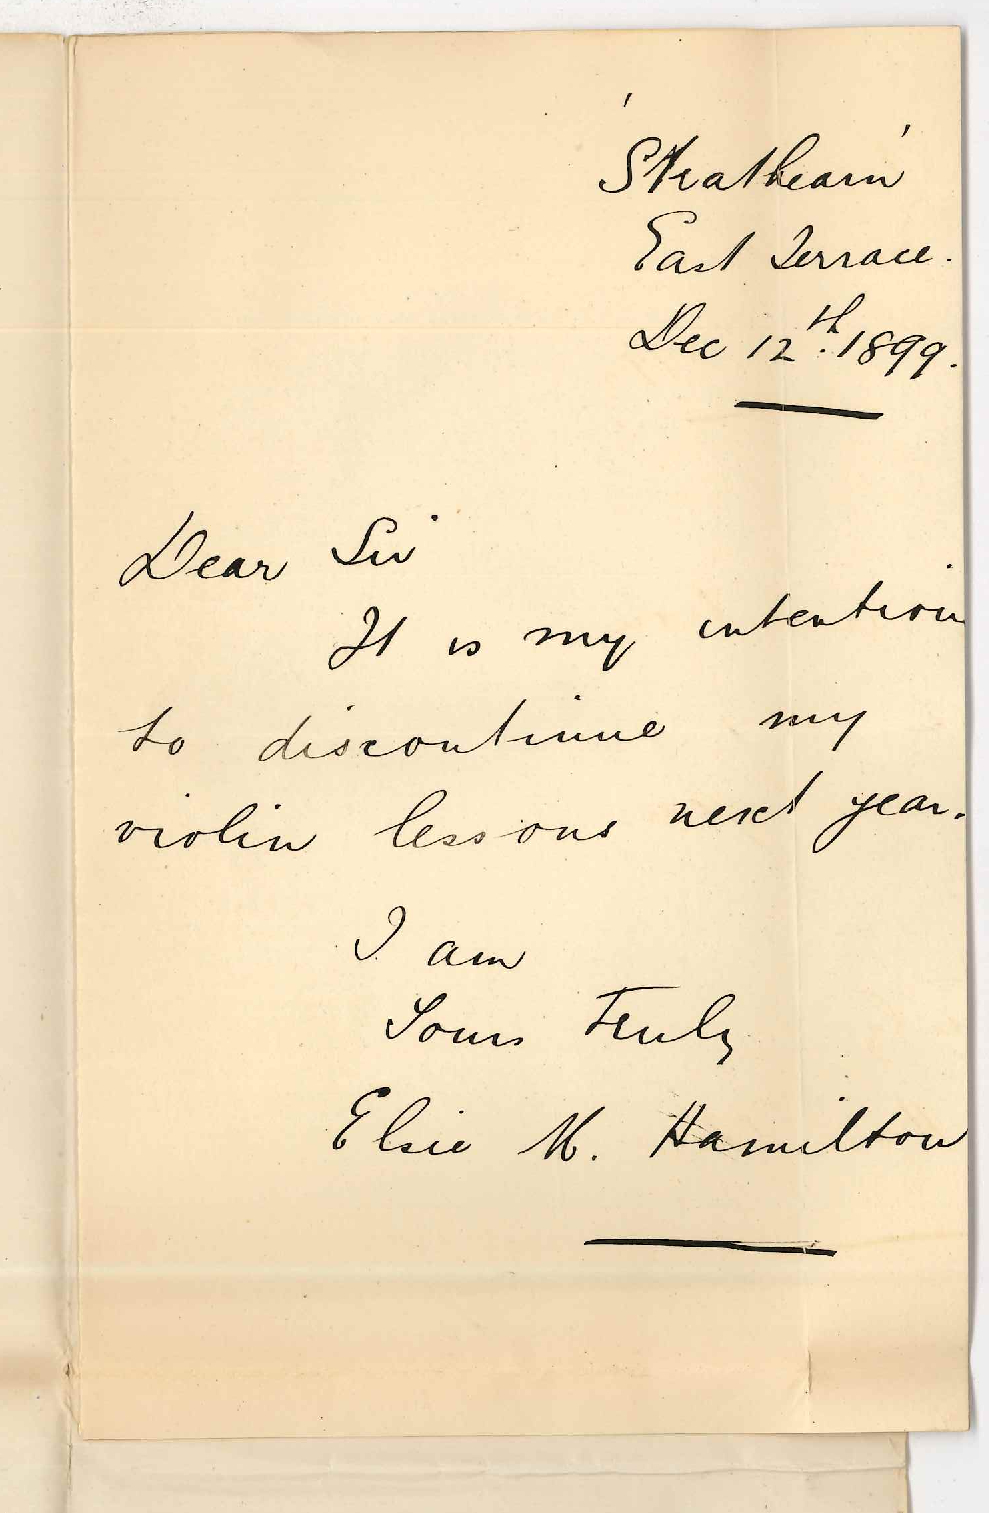 'Strathearn'
East Terrace.
Dec 12th. 1899.
Dear Sir
It is my intention
to discontinue my
violin lessons next year.
I am
Yours Truly
Elsie M. Hamilton